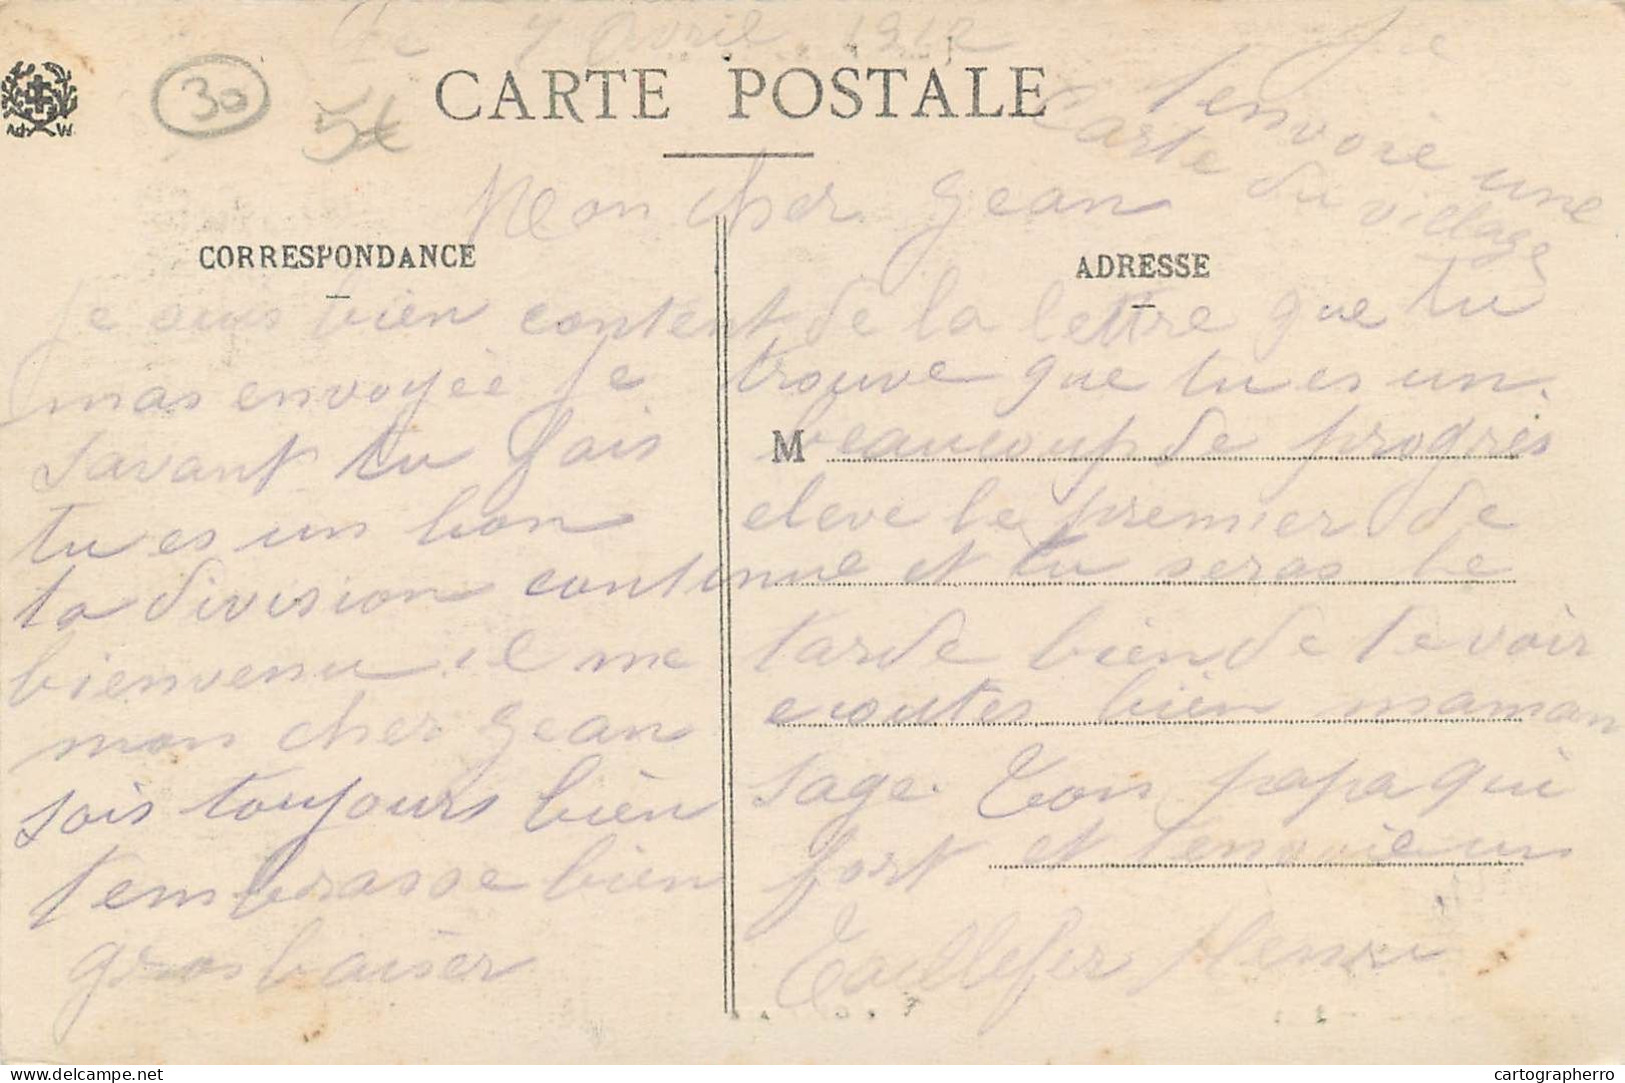 Le 7 Avril 1912
30
5€
CARTE POSTALE
Je
t'envoie une
Carte du village
Mon cher Jean
CORRESPONDANCE
ADRESSE
Je suis bien content de la lettre que tu
mas envoyée Je trouve que tu es un
savant tu fais beaucoup de progrès
M
tu es un bon eleve le premier de
ta division continue et tu seras le
bienvenu il me tarde bien de te voir
mon cher Jean ecoutes bien maman
sois toujours bien sage. Ton papa qui
t'embrasse bien fort et t'envoie un
gros baiser
Taillefer Henri
cartographerro